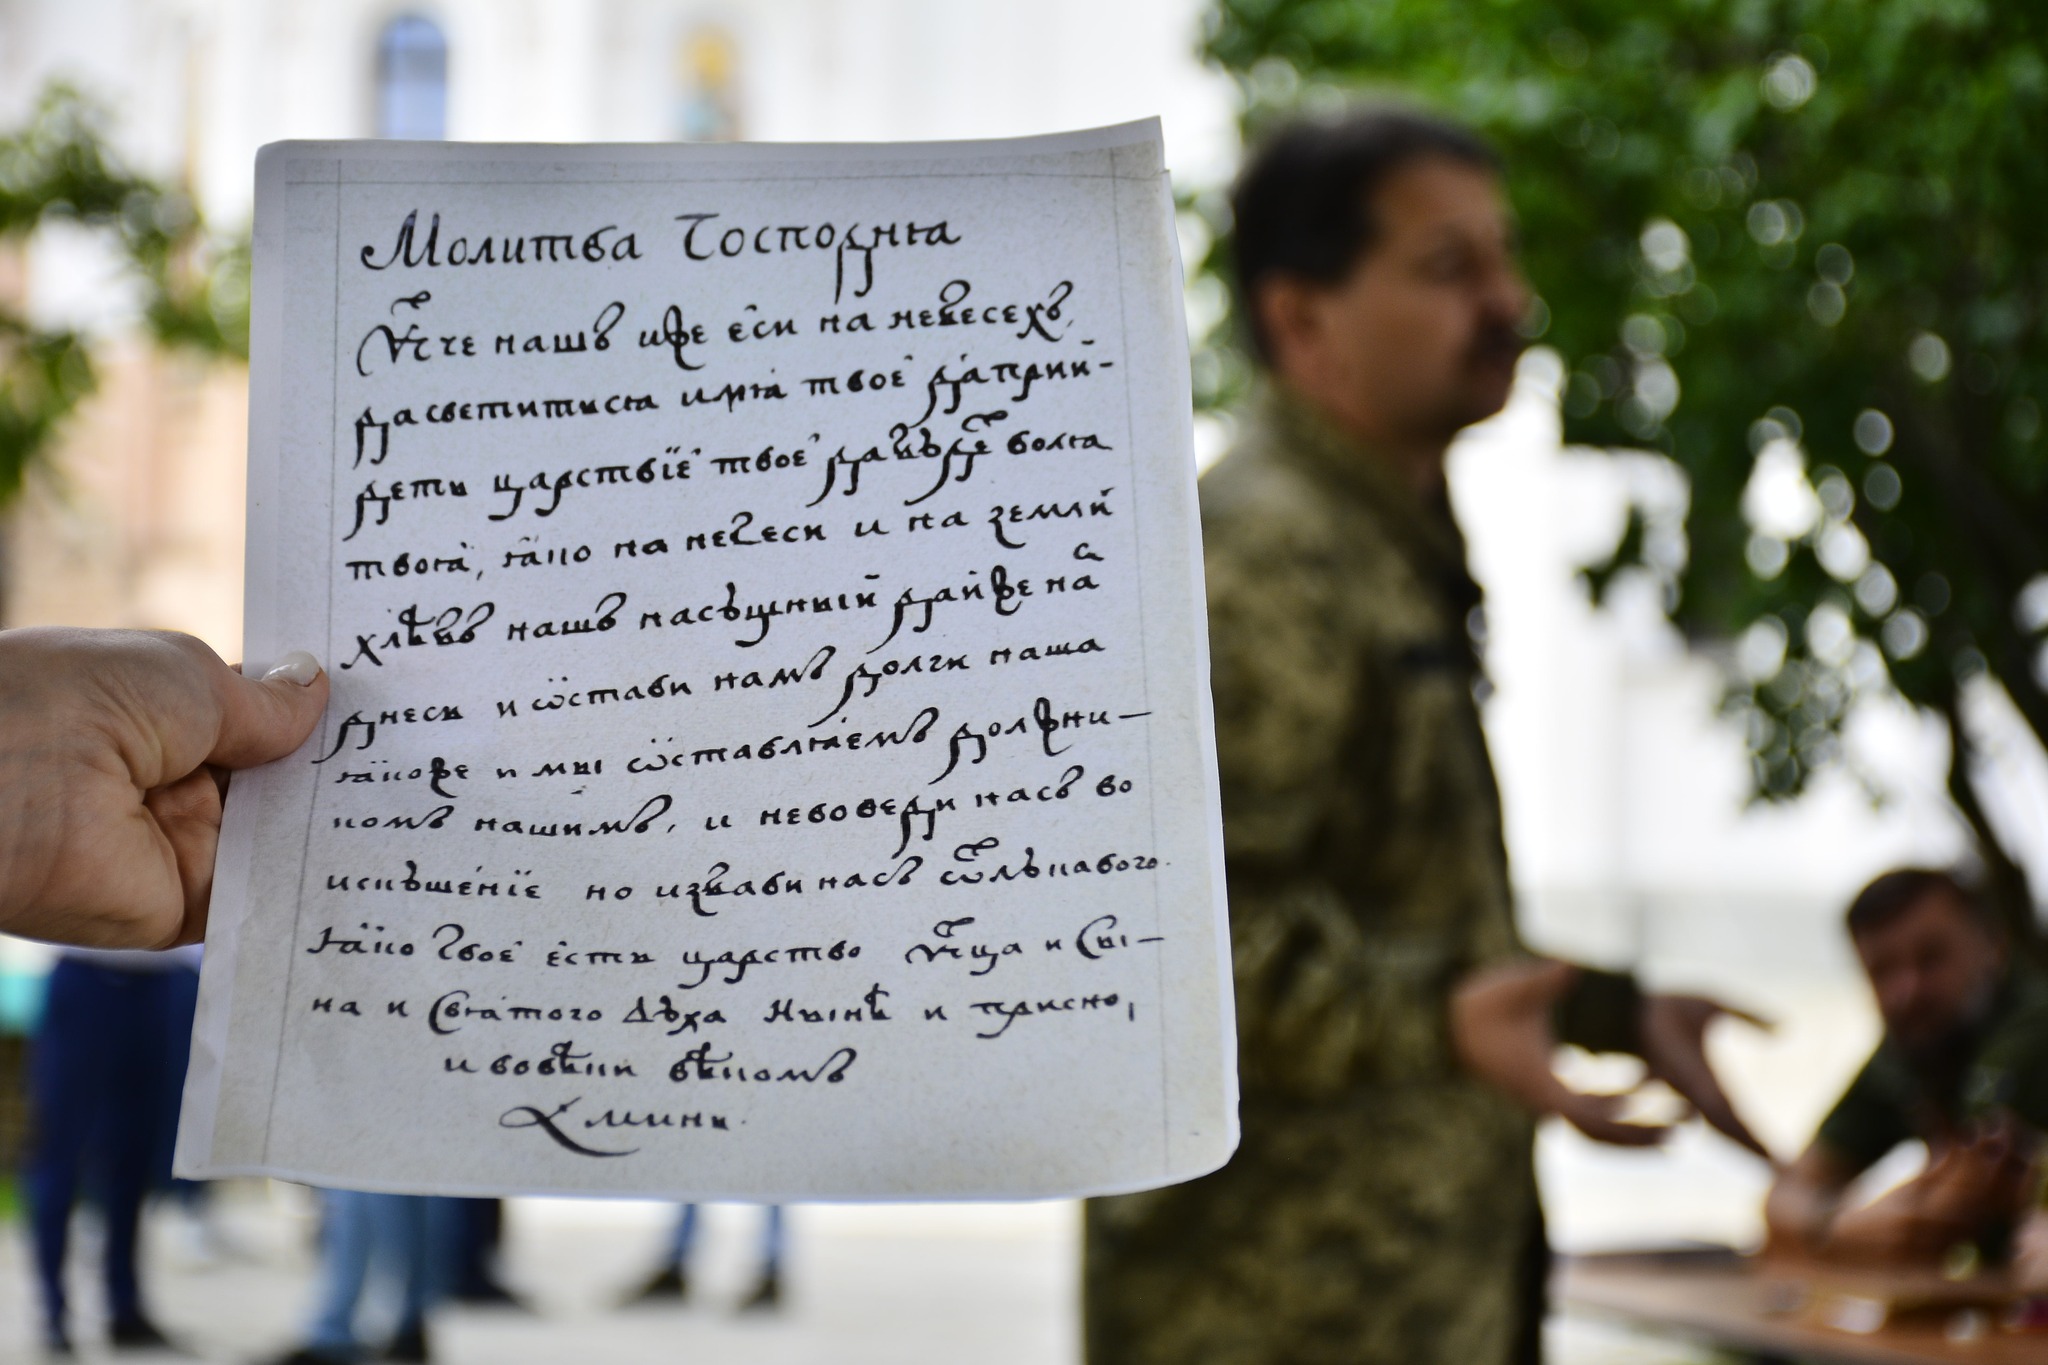 Молитва Господня
Ѿче нашъ иже еси на небесехъ,
да светиться имя твоє да прий-
деть царствїє твоє да бъде болѧ
твоя, яко на небеси и на земли
хлѣбъ нашъ насъщный дайже на с
днесь и ѡстави намъ долги наша
якоже и мы ѡставляемъ должни-
комъ нашимъ, и невоведи насъ во
искъшенїе но избави насъ ѿ лъкавого.
Яко Твоє єсть царство Ѿца и Сы-
на и Святого Дъха Нынѣ и присно,
и вовѣки вѣкомъ
Аминь.